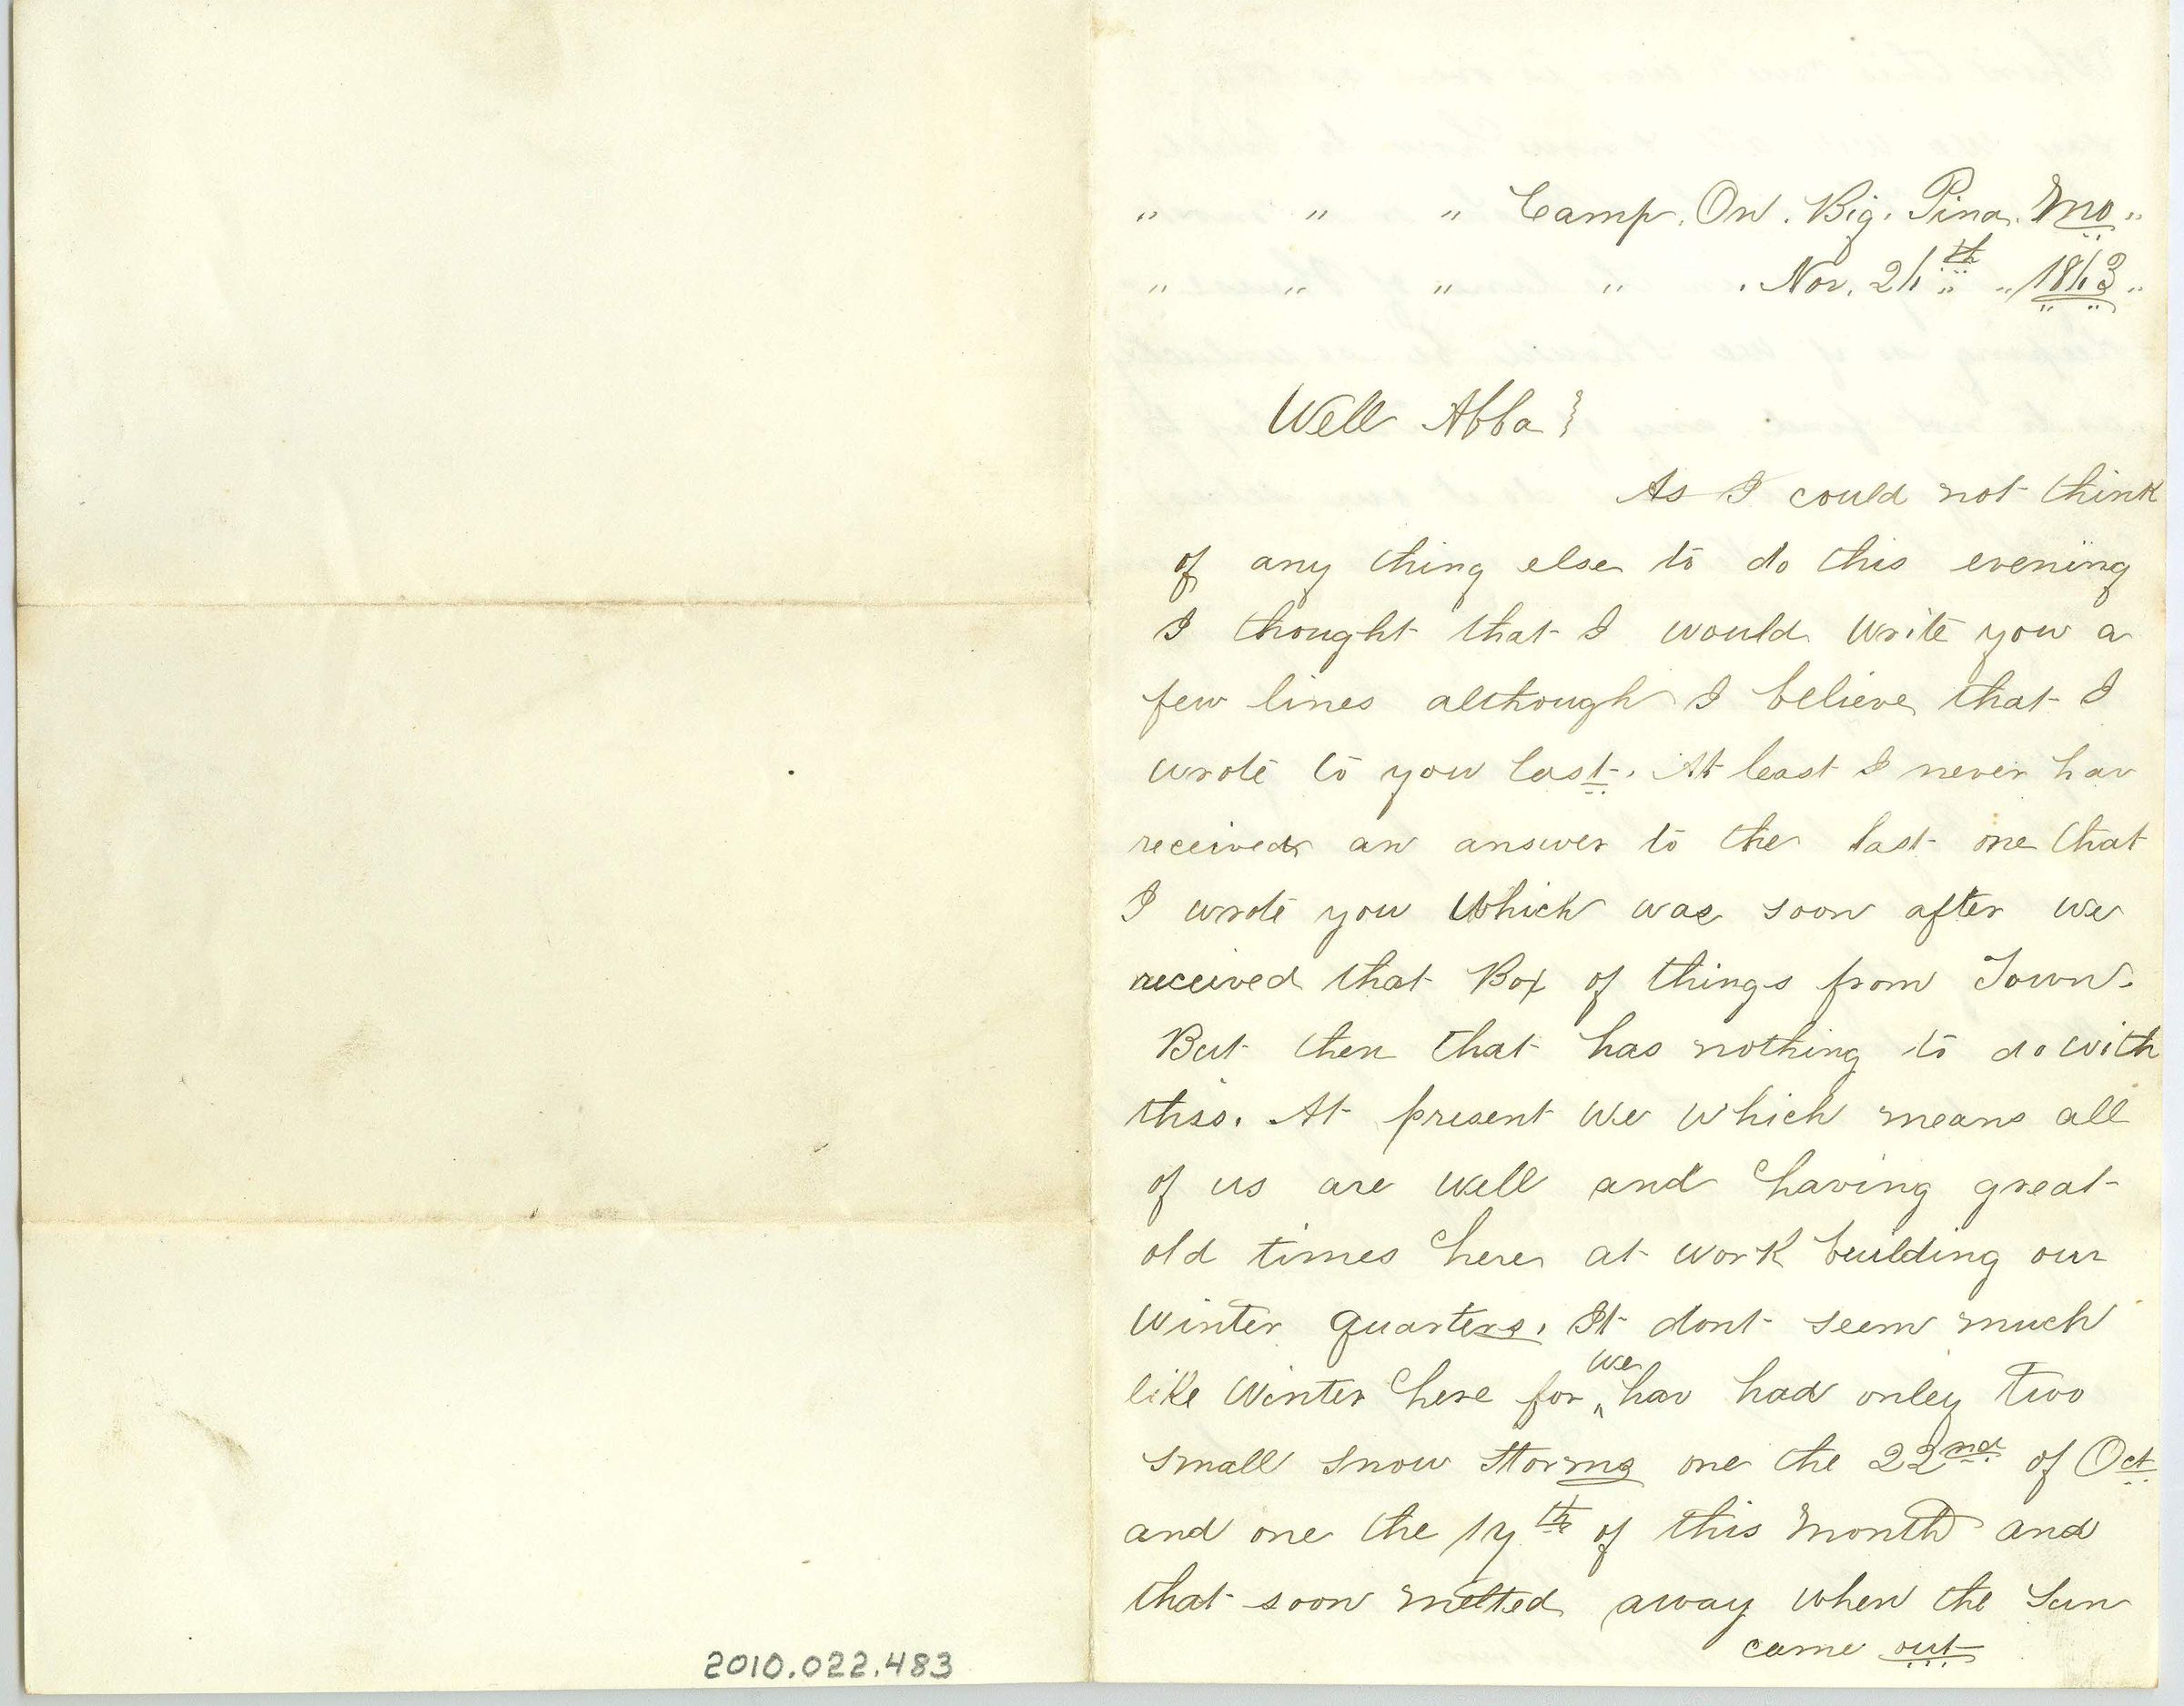 " " " Camp. On. Big. Pina. Mo "
" " " " . Nov. 26th " 1863 "
Well Abba
As I could not think
of any thing else to do this evening
I thought that I would write you a
few lines although I believe that I
wrote to you last. At least I never hav
received an answer to the last one that
I wrote you which was soon after we
received that Box of things from Town.
But then that has nothing to do with
this. At present we which means all
of us are well and having great
old times here at work building our
winter quarters. It dont seem much
like Winter here for we hav had onley two
small snow storms one the 22nd of Oct
and one the 17th of this month and
that soon melted away when the Sun
came out
2010.022.483